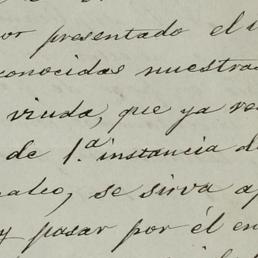 or presentado el
conocidas nuestras
viuda, que ya
de 1.ª instancia de
aleo, se sirva
y pasar por él en